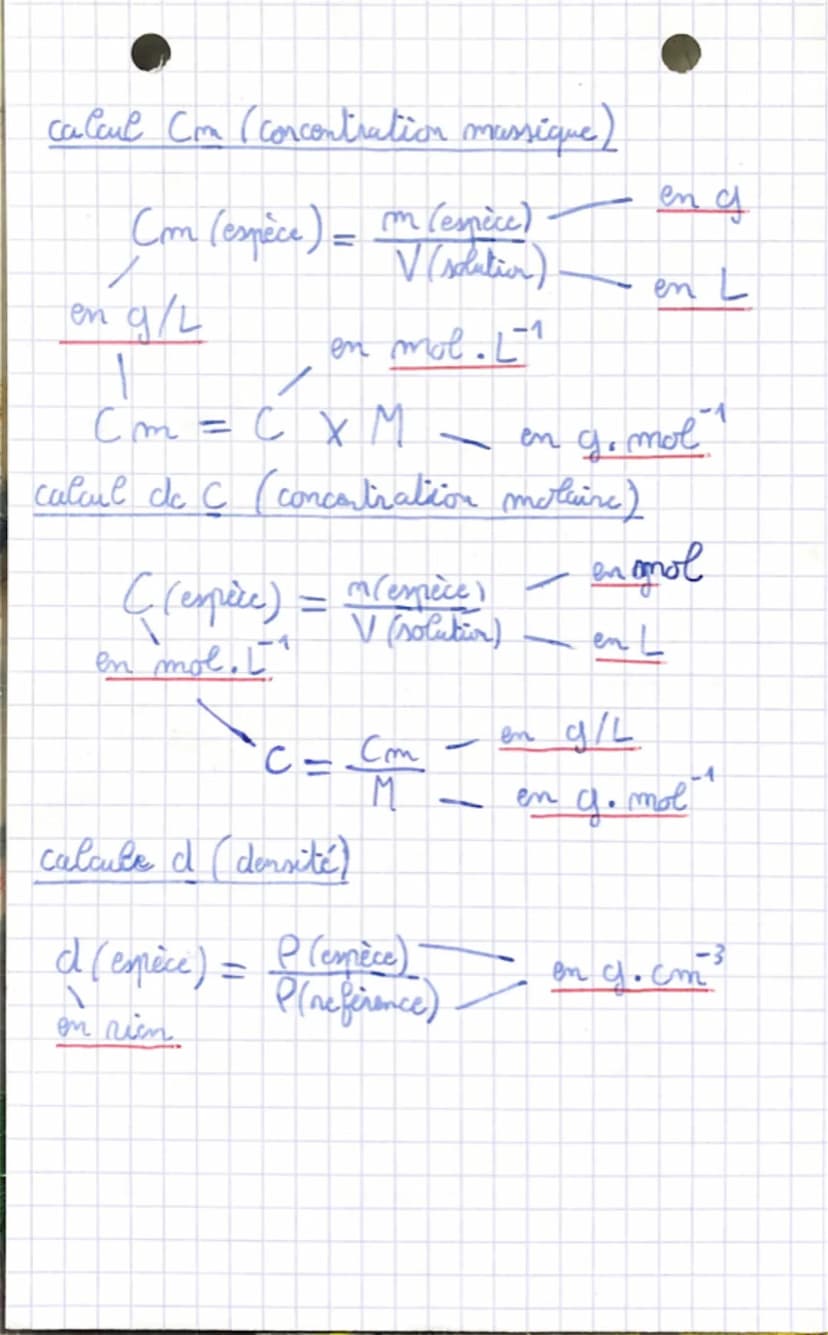 calcul Cm (concentration massique)
Cm (espèce) = m (espèce) / V (solution)
en g
en L
en g/L
en mol . L⁻¹
Cm = C x M
en g. mol⁻¹
calcul de C (concentration molaire)
C (espèce) = n (espèce) / V (solution)
en mol
en L
en mol. L⁻¹
C = Cm / M
en g/L
en g. mol⁻¹
calcule d (densité)
d (espèce) = ρ (espèce) / ρ (reférence)
en g. cm⁻³
en rien